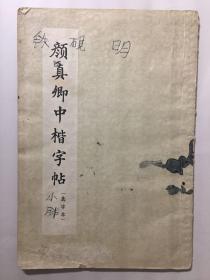 铁砚 明
颜真卿中楷字帖
(集字本)
小胖